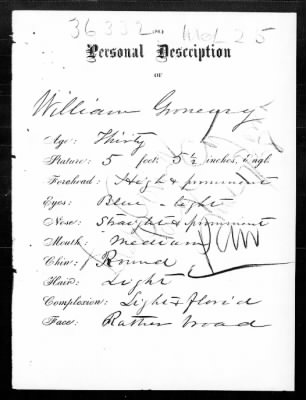 36332
(No. )
Personal Description
OF
William
Age: Thirty
Stature: 5 feet 5½ inches, Engl
Forehead: High & prominent
Eyes: Blue - light
Nose: Straight & prominent
Mouth: Medium
Chin: Round
Hair: Light
Complexion: Light & florid
Face: Rather broad